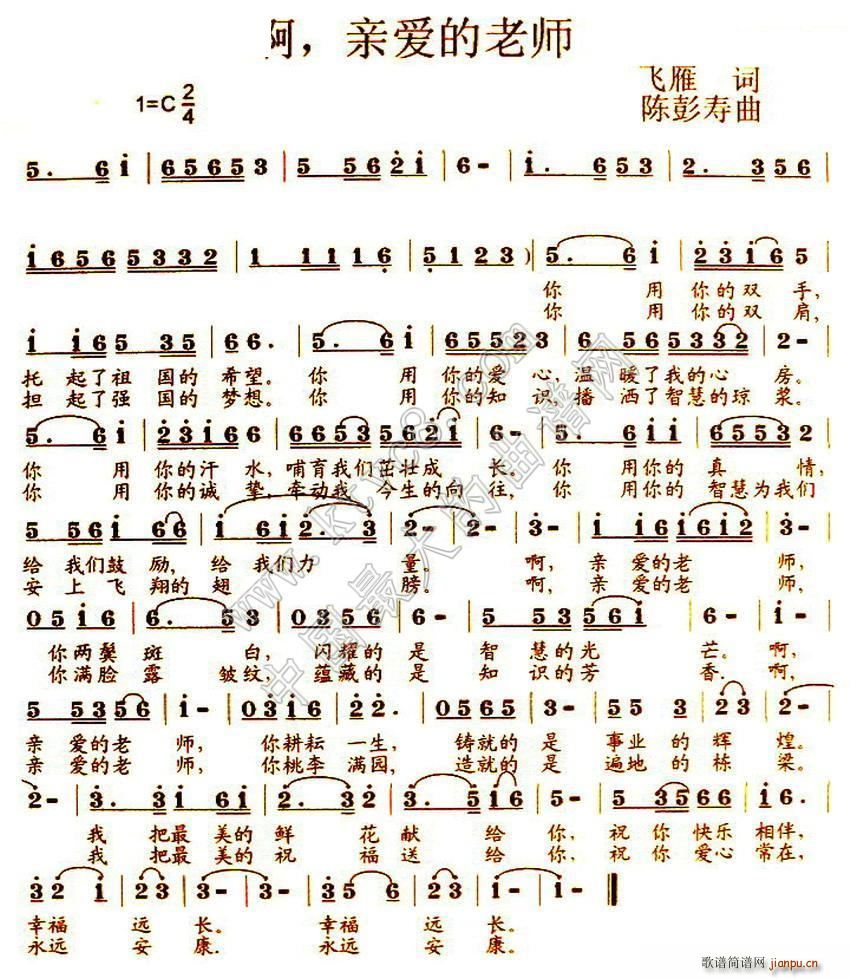 啊，亲爱的老师
飞雁 词
1=C 2/4
陈彭寿曲
5. 6 i | 6 5 6 5 3 | 5 5 6 2 i | 6 - | i. 6 5 3 | 2. 3 5 6 |
i 6 5 6 5 3 3 2 | 1 1 1 1 6 | 5 1 2 3 ) | 5. 6 i | 2 3 i 6 5 |
你 用 你的双 手，
你 用 你的双 肩，
i i 6 5 3 5 | 6 6. | 5. 6 i | 6 5 5 2 3 | 5 5 6 5 3 3 2 | 2 - |
托 起了祖 国的 希望。你 用 你的爱 心，温 暖了我的心 房。
担 起了强 国的 梦想。你 用 你的知 识，播 洒了智慧的琼 浆。
5. 6 i | 2 3 i 6 6 | 6 6 5 3 5 6 2 i | 6 - | 5. 6 i i | 6 5 5 3 2 |
你 用 你的汗 水，哺育我们茁壮成 长。你 用你的 真 情，
你 用 你的诚 挚，牵动我 今生的向 往，你 用你的 智慧为我们
5 5 6 i 6 6 | i 6 i 2. 3 | 2 - | 2 - | 3 - | i 6 i 6 i 2 | 3 - |
给 我们鼓 励，给 我们力 量。 啊，亲 爱的老 师，
安 上飞 翔的 翅 膀。 啊，亲 爱的老 师，
0 5 i 6 | 6. 5 3 | 0 3 5 6 | 6 - | 5 5 3 5 6 i | 6 - | i - |
你两鬓 斑 白，闪耀的 是 智 慧的光 芒。啊，
你满脸 露 皱纹，蕴藏的 是 知 识的芳 香.啊，
5 5 3 3 5 6 | i - | 0 3 i 6 | 2 2. | 0 5 6 5 | 3 - | 5 5 3 | 2 - |
亲 爱的老 师，你耕耘 一生，铸就的 是 事业 的 辉 煌。
亲 爱的老 师，你桃李 满园，造就的 是 遍地 的 栋 梁。
2 - | 3. 3 i 6 i | 2. 3 2 | 3. 5 i 6 | 5 - | 5 3 5 6 6 | i 6. |
我 把最 美的 鲜 花 献 给 你，祝 你 快乐 相伴，
我 把最 美的 祝 福 送 给 你，祝 你 爱心 常在，
3 2 i | 2 3 | 3 - | 3 - | 3 2 i | 2 3 | i - | i - ‖
幸福 远 长。 幸福 远 长。
永远 安 康. 永远 安 康.
www.ktvc8.com
中国最大的曲谱网
歌谱简谱网 jianpu.cn